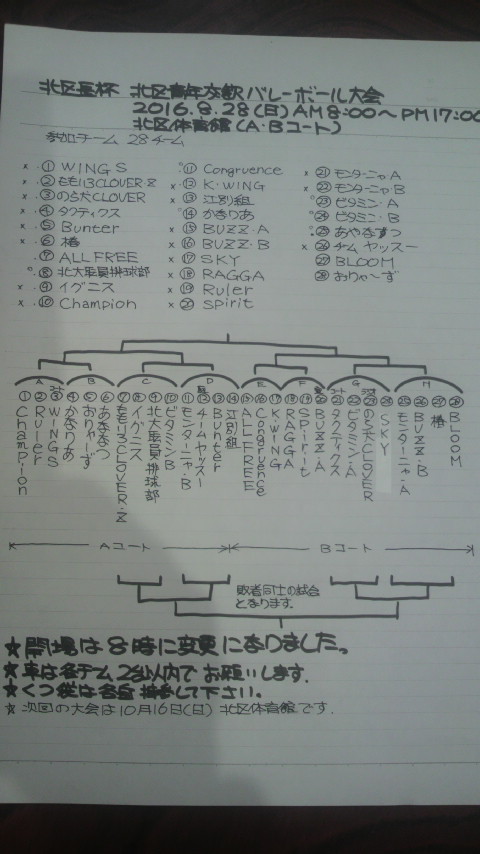 北区長杯 北区青年交歓バレーボール大会
2016.8.28(日)AM8:00〜PM17:00
北区体育館(A・Bコート)
参加チーム 28チーム
× ・① WINGS
× ・② ももいろCLOVER・Z
× ・③ のら犬CLOVER
× ・④ タクティクス
× ・⑤ Bunter
× ・⑥ 椿
・⑦ ALL FREE
・⑧ 北大医員排球部
× ・⑨ イグニス
× ・⑩ Champion
⑪ Congruence
×・⑫ K・WING
×・⑬ 江別組
⑭ かきりあ
× ⑮ BUZZ・A
× ⑯ BUZZ・B
×・⑰ SKY
×・⑱ RAGGA
× ⑲ Ruler
× ⑳ Spirit
× ㉑ モンターニャA
× ㉒ モンターニャB
㉓ ビタミン・A
㉔ ビタミン・B
㉕ あやなすつ
×㉖ チーム ヤッスー
㉗ BLOOM
㉘ おりゃ〜ず
A B C D E F G H
① Champion
② Ruler
③ WINGS
④ かきりあ
⑤ おりゃーず
⑥ あやなすつ
⑦ ももいろCLOVER・Z
⑧ イグニス
⑨ 北大医員排球部
⑩ ビタミンB
⑪ モンターニャ・B
⑫ チームヤッスー
⑬ Bunter
⑭ 江別組
⑮ ALL FREE
⑯ Congruence
⑰ K・WING
⑱ RAGGA
⑲ Spirit
⑳ BUZZ・A
㉑ タクティクス
㉒ ビタミン・A
㉓ のら犬CLOVER
㉔ SKY
㉕ モンターニャ・A
㉖ BUZZ・B
㉗ 椿
㉘ BLOOM
Aコート
Bコート
敗者同士の試合
となります。
★開場は8時に変更になりました。
★車は各チーム2台以内でお願いします.
★くつ袋は各自持参して下さい。
☆次回の大会は10月16日(日)北区体育館です.